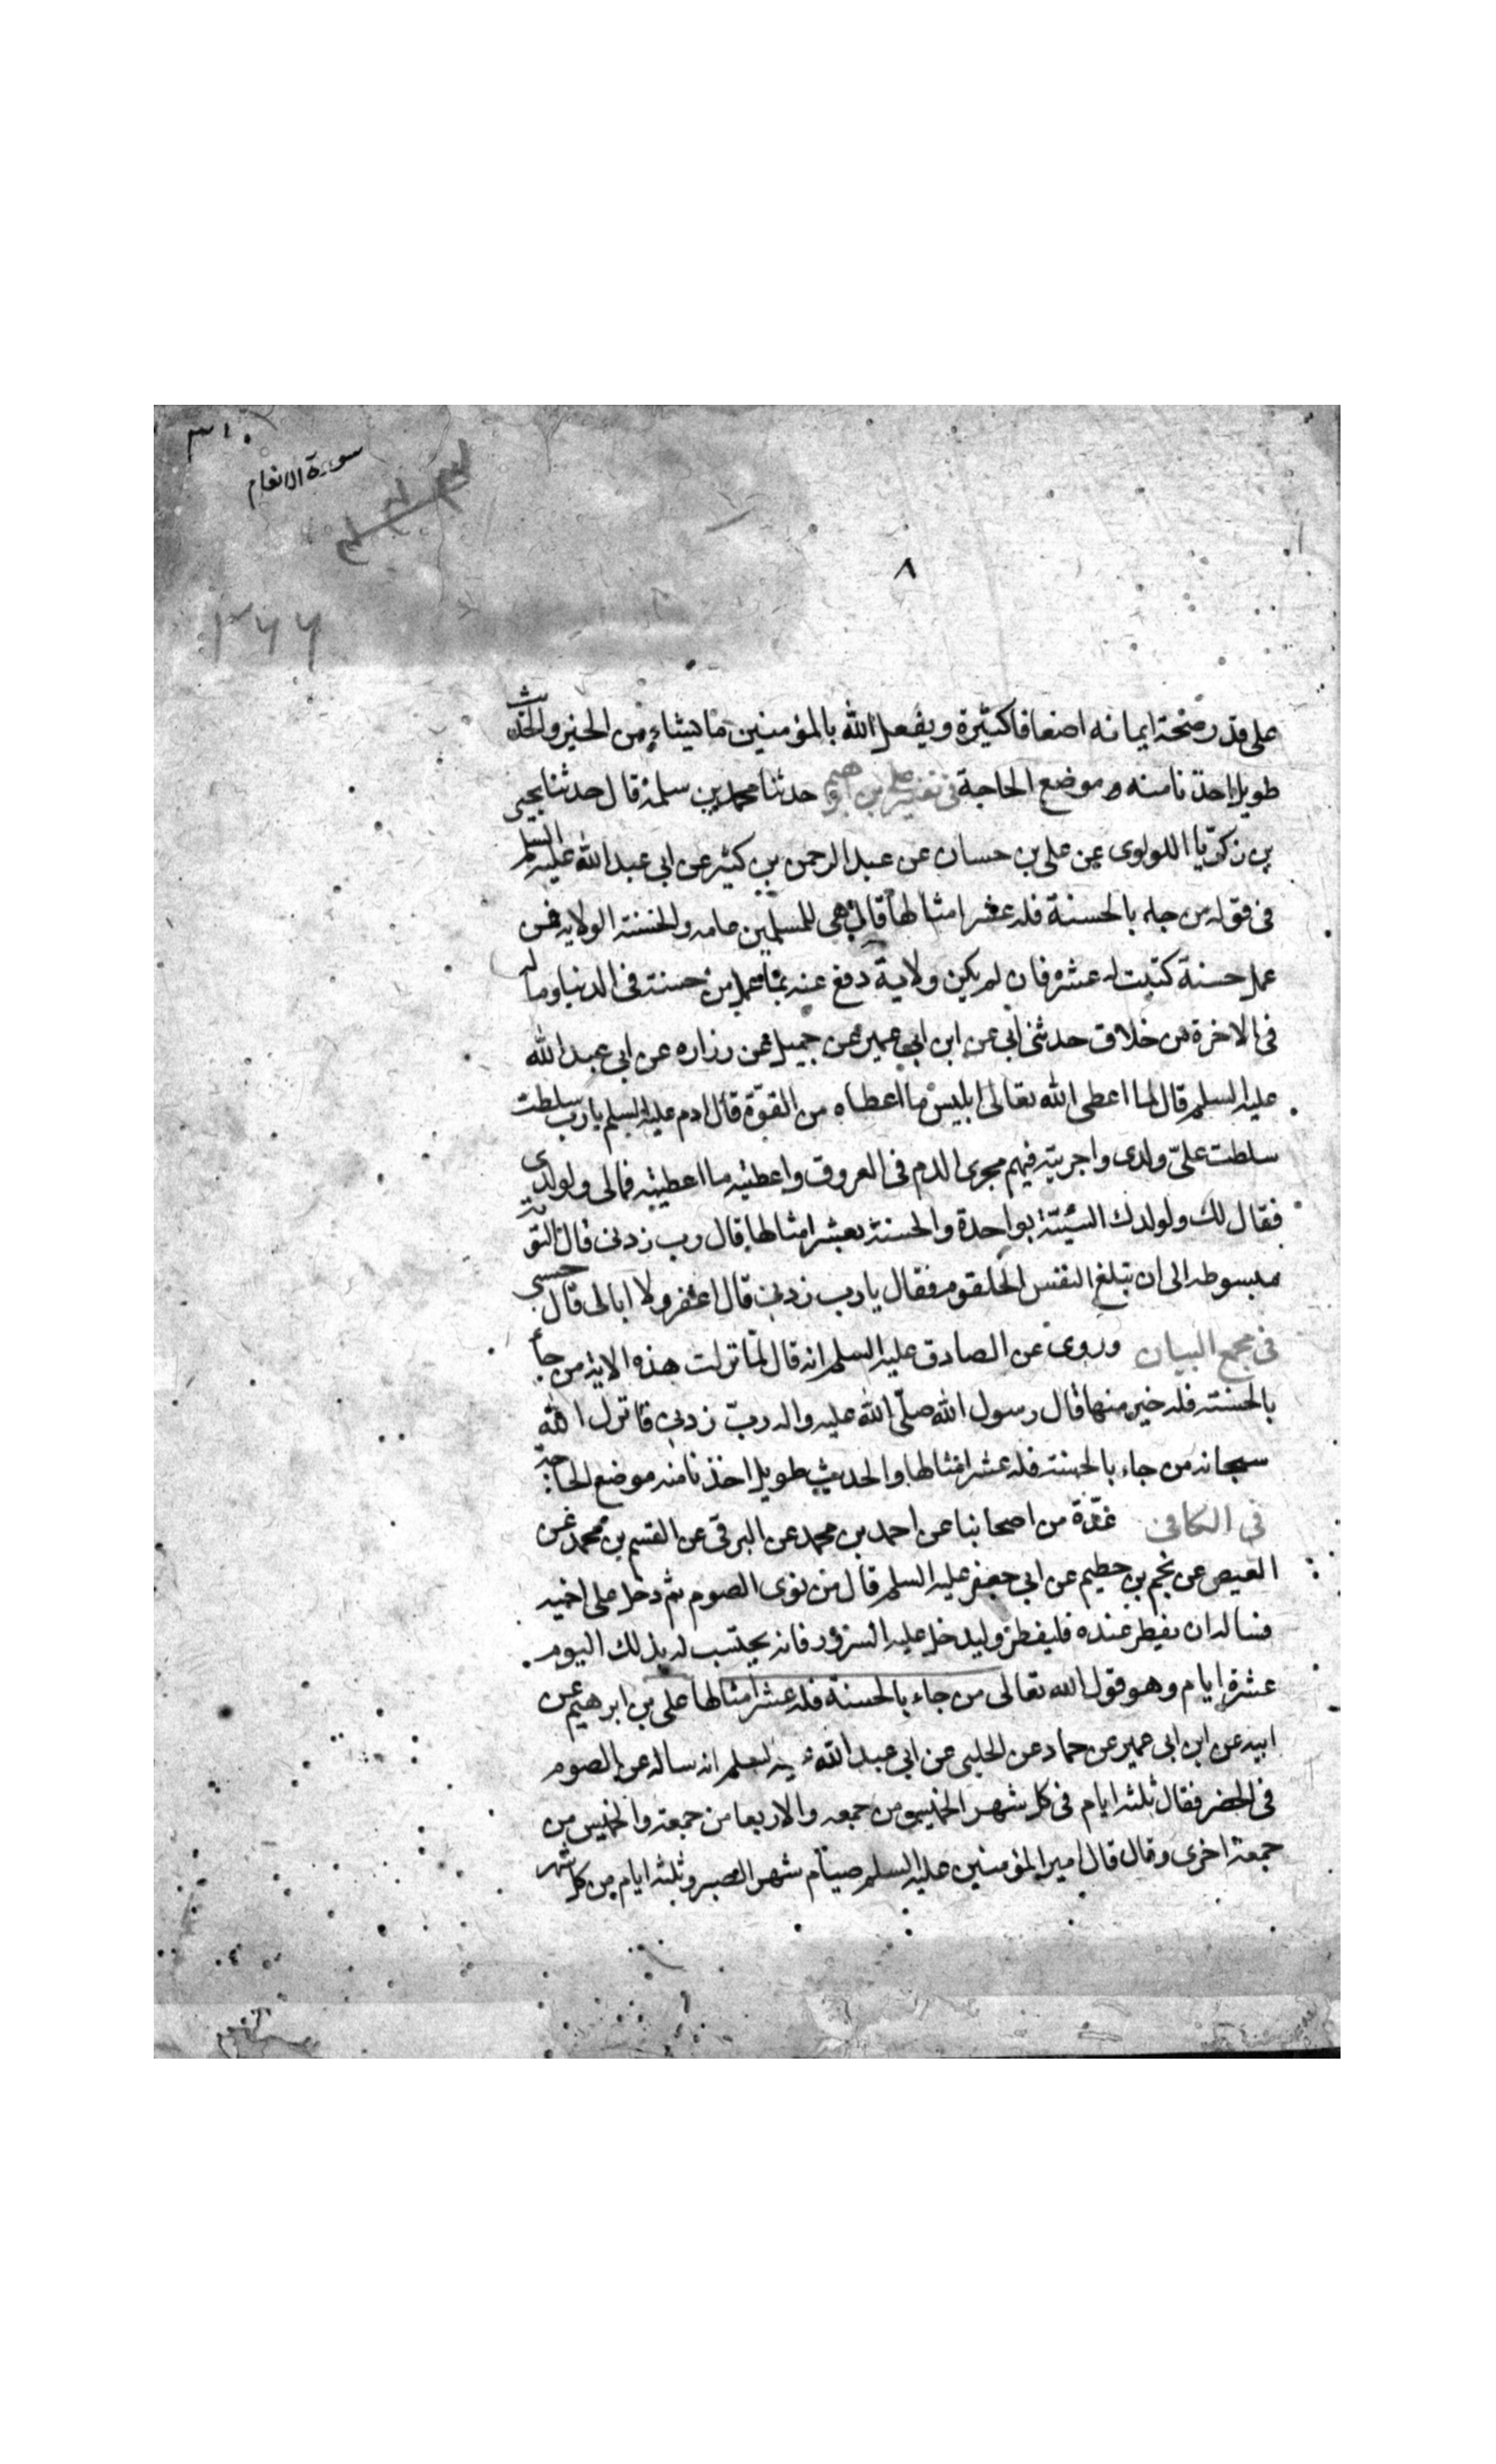 ٣١٠
سورة الانعام
٨
٣٦٦
على قدر صحة ايمانه اضعافا كثيرة ويفعل الله بالمؤمنين ما يشاء من الخير والحديث
طويل اخذنا منه موضع الحاجة فى تفسير على بن ابرهيم حدثنا محمد بن سلمة قال حدثنا يحيى
بن زكريا اللولوى عن على بن حسان عن عبد الرحمن بن كثير عن ابى عبد الله عليه السلم
فى قوله من جاء بالحسنة فله عشر امثالها قال هى للمسلمين عامه والحسنة الولاية فمن
عمل حسنة كتبت له عشر فان لم يكن ولاية دفع عنه بما عمل من حسنة فى الدنيا وما له
فى الاخرة من خلاق حدثنى ابى عن ابن ابى عمير عن جميل عن زراره عن ابى عبد الله
عليه السلم قال لما اعطى الله تعالى ابليس ما اعطاه من القوّة قال ادم عليه السلم يا رب سلطت
سلطت علىّ ولدى واجريته فيهم مجرى الدم فى العروق واعطيته ما اعطيته فمالى ولولدى
فقال لك ولولدك السيّئة بواحدة والحسنة بعشر امثالها قال رب زدنى قال التوبة
مبسوطه الى ان تبلغ النفس الحلقوم فقال يا رب زدنى قال اغفر ولا ابالى قال حسبى
فى مجمع البيان وروى عن الصادق عليه السلم انه قال لمّا نزلت هذه الاية من جاء
بالحسنة فله خير منها قال رسول الله صلّى الله عليه واله ربّ زدنى فانزل الله
سبحانه من جاء بالحسنة فله عشر امثالها والحديث طويل اخذنا منه موضع الحاجة
فى الكافى عدّة من اصحابنا عن احمد بن محمد عن البرقى عن القسم بن محمد عن
العيص عن نجم بن حطيم عن ابى جعفر عليه السلم قال من نوى الصوم ثم دخل على اخيه
فساله ان يفطر عنده فليفطر وليدخل عليه السرور فانه يحتسب له بذلك اليوم
عشرة ايام وهو قول الله تعالى من جاء بالحسنة فله عشر امثالها على بن ابرهيم عن
ابيه عن ابن ابى عمير عن حماد عن الحلبى عن ابى عبد الله عليه السلم انه ساله عن الصوم
فى الحضر فقال ثلثه ايام فى كل شهر الخميس من جمعه والاربعا من جمعة والخميس من
جمعة اخرى وقال قال امير المؤمنين عليه السلم صيام شهر الصبر وثلثه ايام من كل شهر